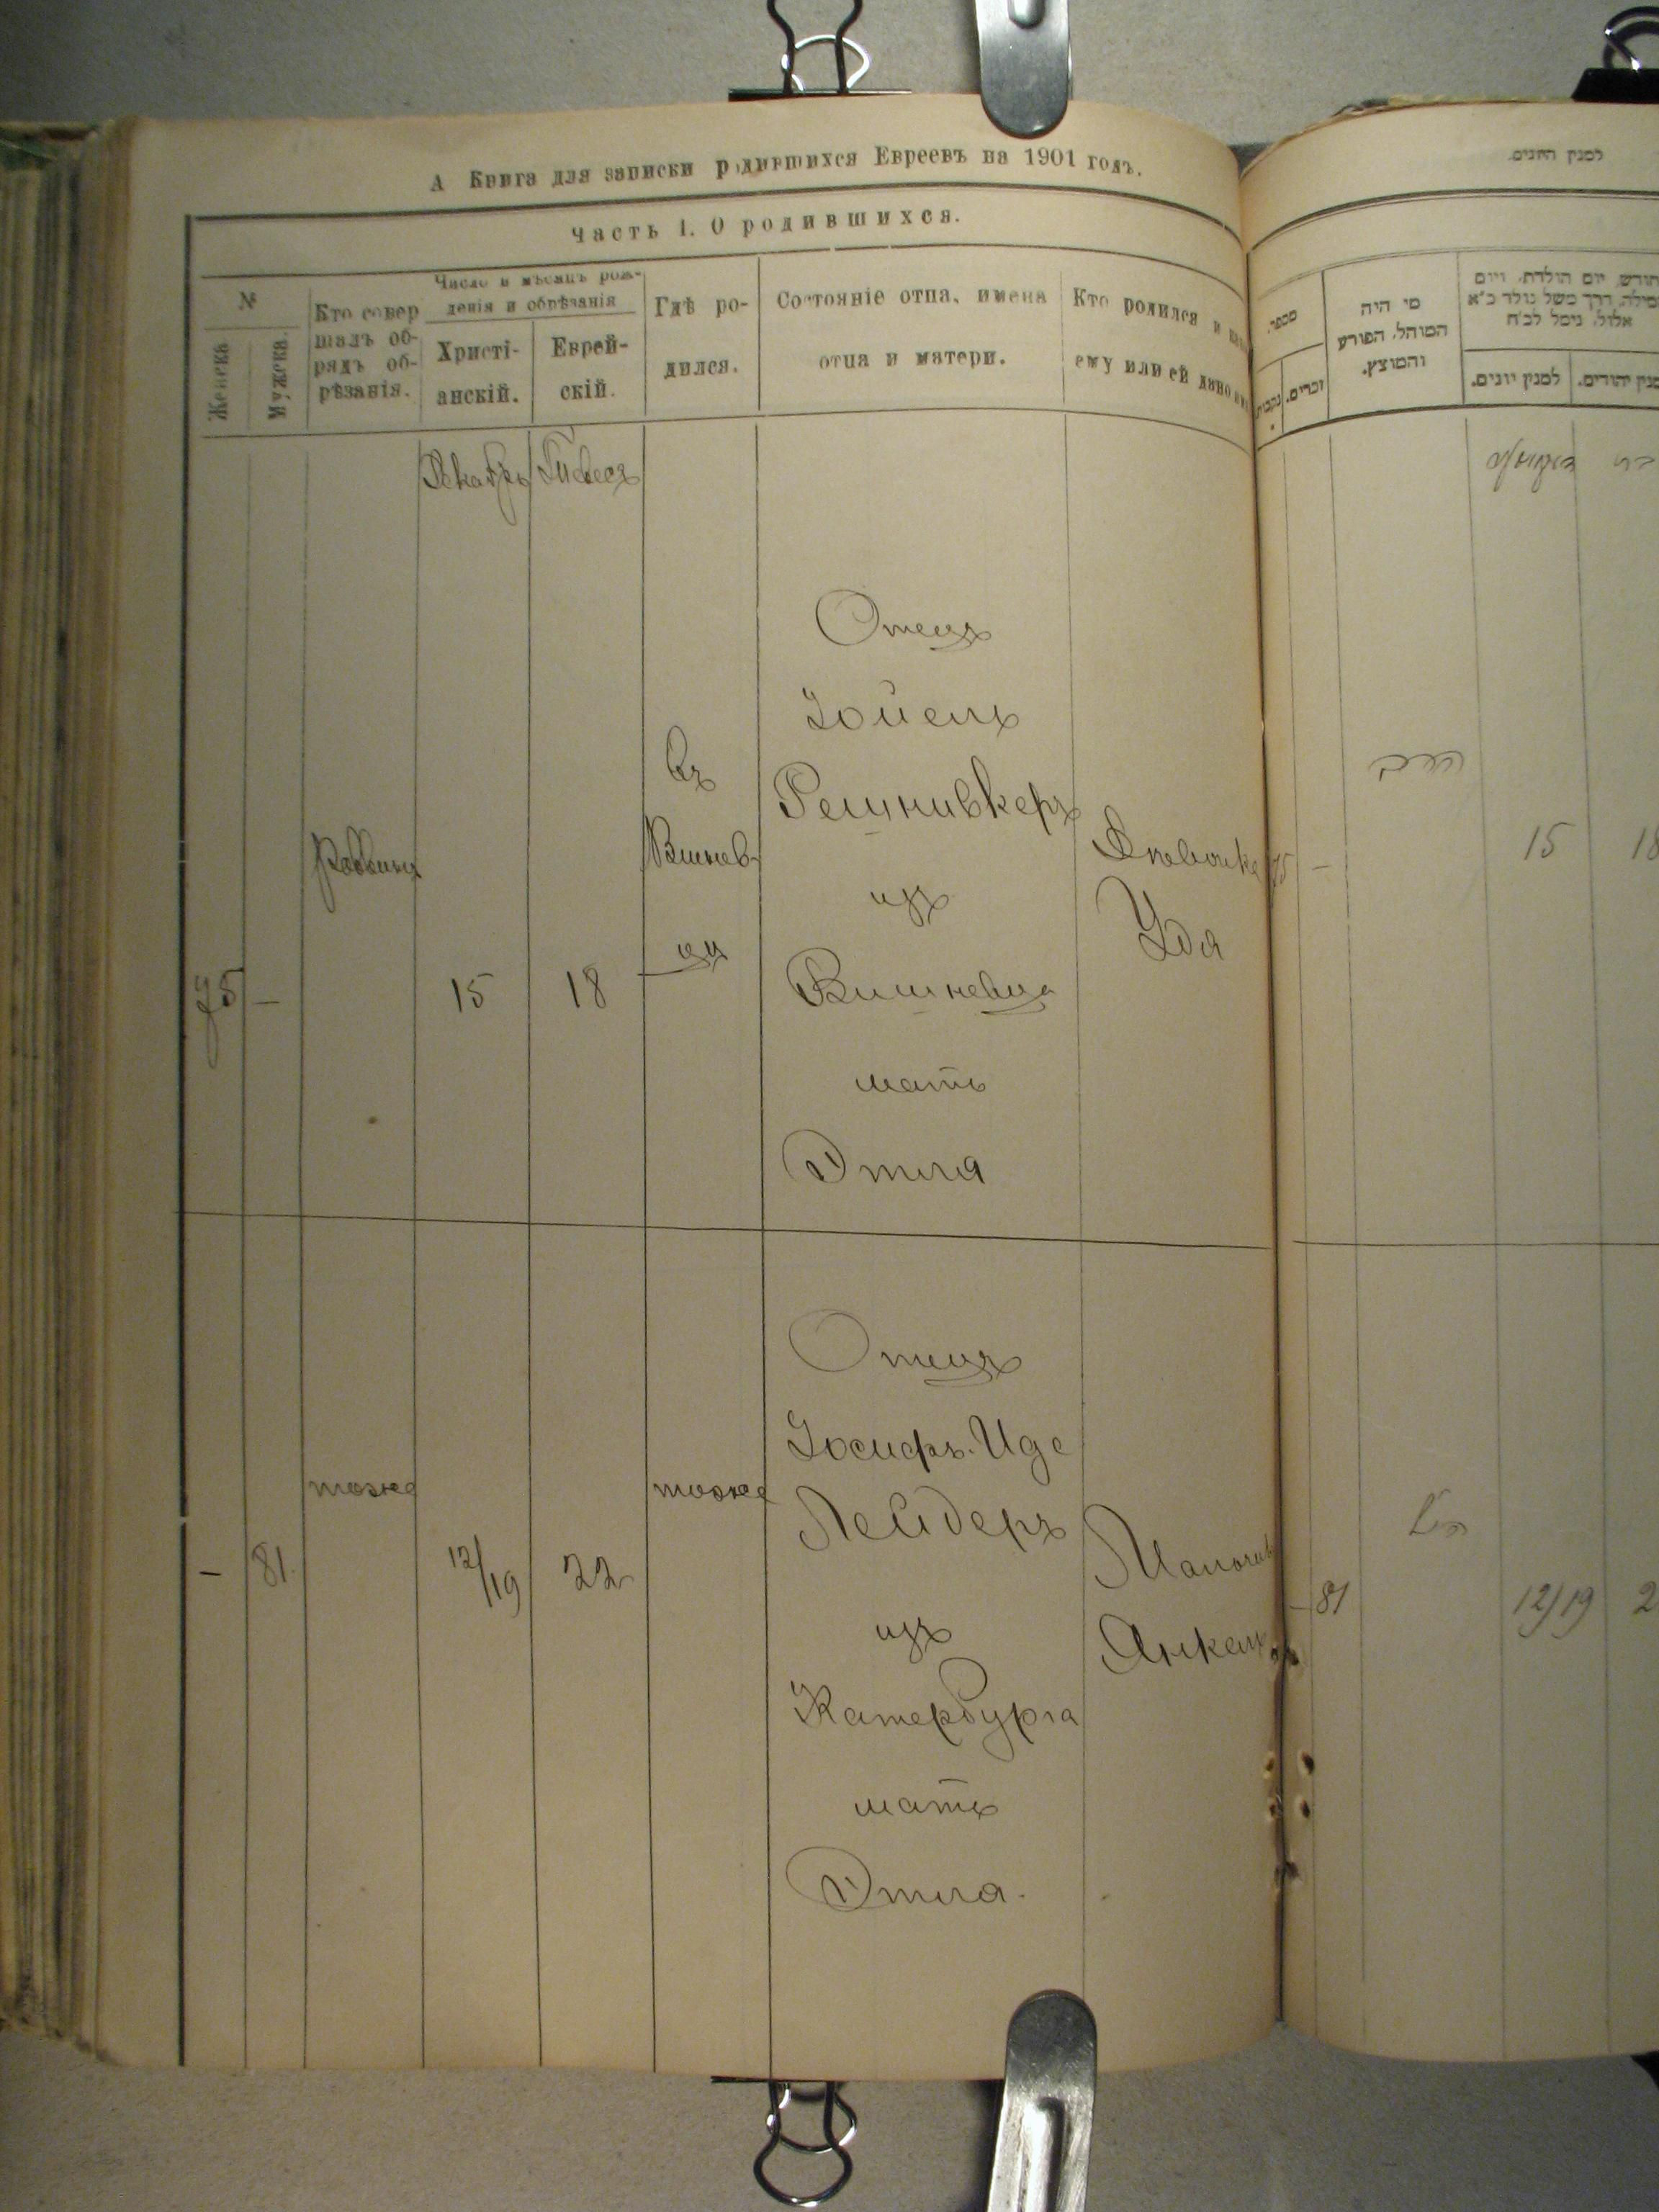 А Книга для записки родившихся Евреевъ на 1901 годъ.
Часть I. О родившихся.
№
Женска
Мужска.
Кто совер
шалъ об-
рядъ об-
рѣзанія.
Число и мѣсяцъ рож-
денія и обрѣзанія
Христі-
анскій.
Еврей-
скій.
Гдѣ ро-
дился.
Состояніе отца, имена
отца и матери.
Кто родился и
ему или ей дано
Декабрь
Тевесъ
75
—
Раввинъ
15
18
Въ
Вишнев-
цѣ
Отецъ
Іойель
Решнивкеръ
изъ
Вишневца
мать
Этля
Дѣвочка
Удя
—
81.
тоже
12/19
22
тоже
Отецъ
Іосифъ-Иде
Лейдеръ
изъ
Катербурга
мать
Этля.
Мальчикъ
Янкель
למנין היונים.
מספר.
נקבות
זכרים.
מי היה
המוהל, הפורע
והמוצץ.
חודש, יום הולדת, ויום
מילה, דרך משל נולד כ״א
אלול, נימל לכ״ח
למנין יונים.
למנין יהודים.
דעקאבר
75
—
הרב
15
18
—
81
הנ״ל
12/19
2